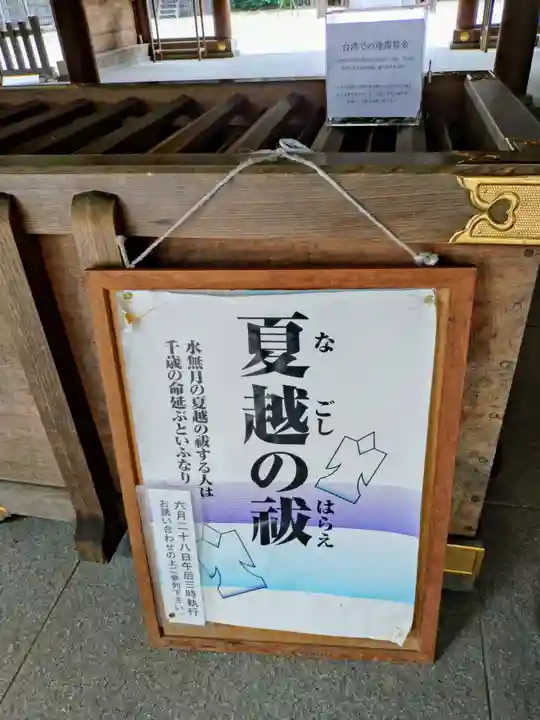 台湾での地震募金
夏越の祓
なごしはらえ
水無月の夏越の祓する人は
千歳の命延ぶといふなり
六月二十八日午后三時執行
お誘い合わせの上ご参列下さい。